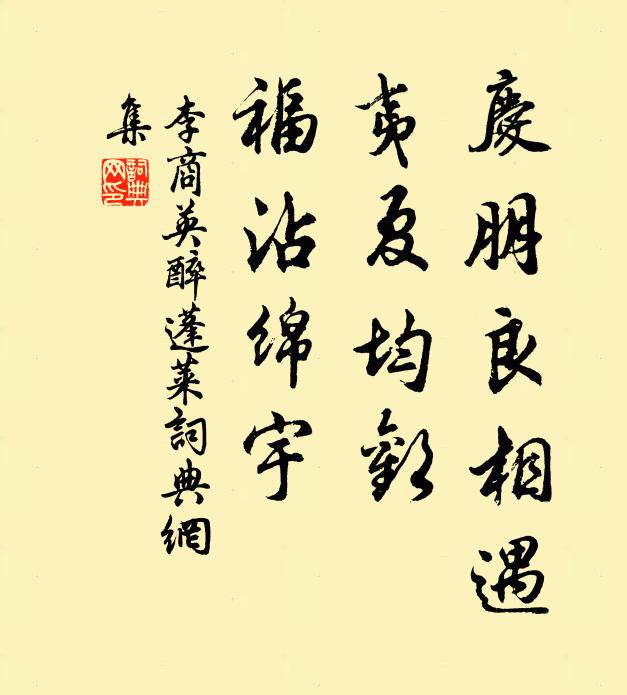 慶朋良相遇
夷夏均歡
福沾綿宇
李商英醉蓬萊詞典網
集
詞典
网印